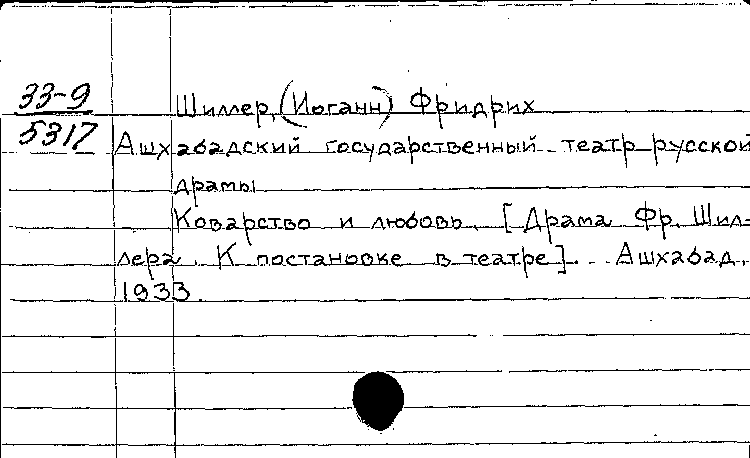 33-9
Шиллер, (Иоганн) Фридрих
5317
Ашхабадский государственный театр русской
драмы
Коварство и любовь. [Драма Фр. Шил-
лера. К постановке в театре]. Ашхабад,
1933.